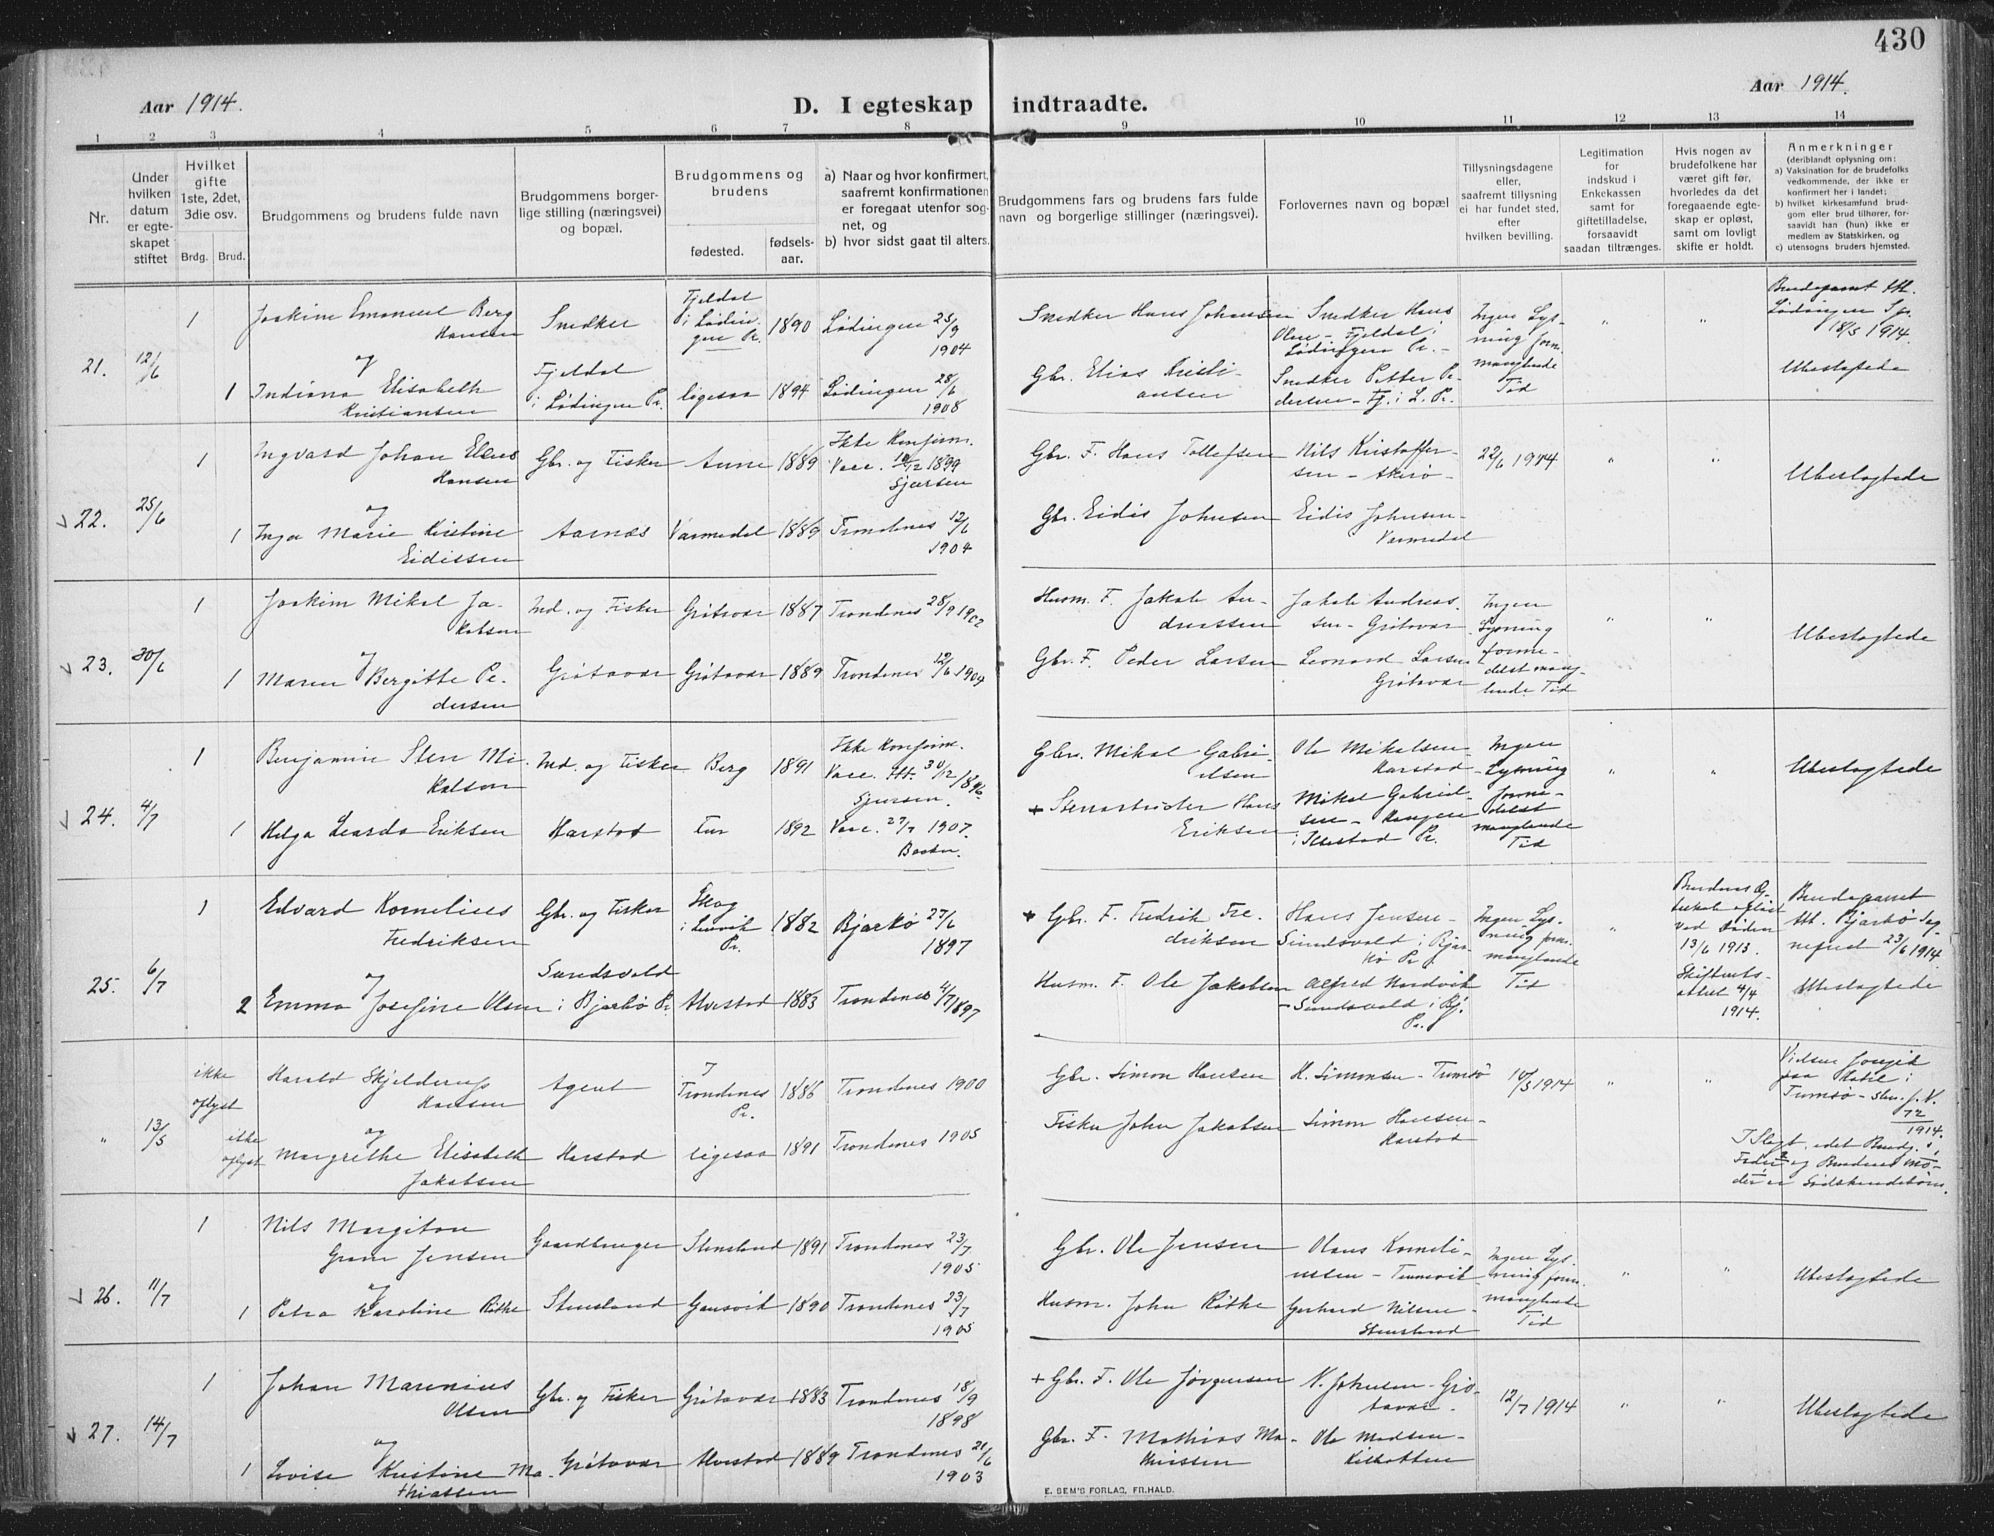 430
Aar 1914.
D. I egteskap indtraadte.
Aar 1914.
1 2 3 4 5 6 7 8 9 10 11 12 13 14
Nr.
Under hvilken datum er egteskapet stiftet
Hvilket gifte 1ste, 2det, 3die osv.
Brdg. Brud.
Brudgommens og brudens fulde navn
Brudgommens borgerlige stilling (næringsvei) og bopæl.
Brudgommens og brudens
fødested. fødselsaar.
a) Naar og hvor konfirmert, saafremt konfirmationen er foregaat utenfor sognet, og
b) hvor sidst gaat til alters.
Brudgommens fars og brudens fars fulde navn og borgerlige stillinger (næringsvei).
Forlovernes navn og bopæl
Tillysningsdagene eller, saafremt tillysning ei har fundet sted, efter hvilken bevilling.
Legitimation for indskud i Enkekassen samt for giftetilladelse, forsaavidt saadan tiltrænges.
Hvis nogen av brudefolkene har været gift før, hvorledes da det foregaaende egteskap er opløst, samt om lovligt skifte er holdt.
Anmerkninger
(deriblandt oplysning om:
a) Vaksination for de brudefolks vedkommende, der ikke er konfirmert her i landet;
b) hvilket kirkesamfund brudgom eller brud tilhører, forsaavidt han (hun) ikke er medlem av Statskirken, og
c) utensogns bruders hjemsted.
21. 12/6
1 Joakim Emanuel Berg Hansen Snedker Fjeldal i Lødingen Pr. 1890 Lødingen 25/9 1904 Snedker Hans Johansen Snedker Hans Olsen - Fjeldal i Lødingen Pr. - Ingen Lysning form. manglende Tid " " Lødingen 18/5 1914.
og
1 Indiana Elisabeth Kristiansen Fjeldal i Lødingen Pr. ligesaa 1894 Lødingen 28/6 1908 Gbr. Elias Kristiansen Snedker Petter Pedersen - Fj. i L. Pr. Ubeslægtede
22. 25/6
1 Ingvard Johan Hansen Gbr. og Fisker 1889 Ikke Konfirm. Vacc. 10/12 1899 Gbr. F. Hans Tollefsen Nils Kristoffersen - 22/6 1914 " " Ubeslægtede
og
1 Inga Marie Kristine Eidissen Aarnæs Varmedal 1889 Trondenes 12/6 1904 Gbr. Eidis Johnsen Eidis Johnsen - Varmedal
23. 30/6
1 Joakim Mikal Jakobsen Ind. og Fisker Grøtavær 1887 Trondenes 28/9 1902 Husm. F. Jakob Andreassen Jakob Andreassen - Grøtavær Ingen Lysning formedelst manglende Tid " " Ubeslægtede
og
1 Maren Bergitte Pedersen Grøtavær Grøtavær 1889 Trondenes 12/6 1904 Gbr. F. Peder Larsen Leonard Larsen Grøtavær
24. 4/7
1 Benjamin Sten Mikalsen Ind. og Fisker Berg 1891 Ikke Konfirm. Vacc. Att. 30/12 1896 Gbr. Mikal Gabrielsen Ole Mikalsen - Harstad - Ingen Lysning formedelst manglende Tid " " Ubeslægtede
1 Helga Eriksen Harstad 1892 Vacc. 27/7 1907. + Stenarbeider Hans Eriksen Mikal Gabrielsen -
25. 6/7
1 Edvard Kornelius Fredriksen Gbr. og Fisker Skog i Lenvik Pr. 1882 Bjarkø 27/6 1897 + Gbr. F. Fredrik Fredriksen Hans Jensen - Sundsvold i Bjarkø Pr. Ingen Lysning form. manglende Tid " ved Døden 13/6 1913. Skifteretsattest 4/4 1914. Bjarkø Sognepræst 23/6 1914.
og
2 Emma Josefine Olsen Sundsvold i Bjarkø Pr. Alvestad 1883 Trondenes 4/7 1897 Husm. F. Ole Jakobsen Alfred Hardvik - Sundsvold i Bj. Pr. Ubeslægtede
" 13/5
ikke oplyst Harald Skjelderup Hansen Agent Trondenes Pr. 1886 Trondenes 1900 Gbr. Simon Hansen H. Simonsen - Tromsø 10/5 1914 " " Vielsen foregik paa Hotel i Tromsø - 72/1914.
og
ikke oplyst Margrethe Elisabeth Jakobsen Harstad ligesaa 1891 Trondenes 1905 Fisker John Jakobsen Simon Hansen - Harstad
Fader og Brudens Moder er Sødskendebørn.
26. 11/7
1 Nils Margiton Gram Jensen Gaardbruger Stensland 1891 Trondenes 23/7 1905 Gbr. Ole Jensen Olaus Korneliussen - Tennevik Ingen Lysning form. manglende Tid " " Ubeslægtede
og
1 Petra Karoline Röthe Stensland Gausvik 1890 Trondenes 23/7 1905 Husm. John Röthe Gerhard Nilsen - Stensland
27. 14/7
1 Johan Marenius Olsen Gbr. og Fisker Grøtavær 1883 Trondenes 18/9 1898 + Gbr. F. Ole Jørgensen N. Johnsen - Grøtavær. 12/7 1914 " " Ubeslægtede
og
1 Lovise Kristine Mathiassen Grøtavær Alvestad 1889 Trondenes 21/6 1903 Gbr. F. Mathias Mathissen Ole Madsen - Kilbotten
E. SEM'S FORLAG, FR.HALD.